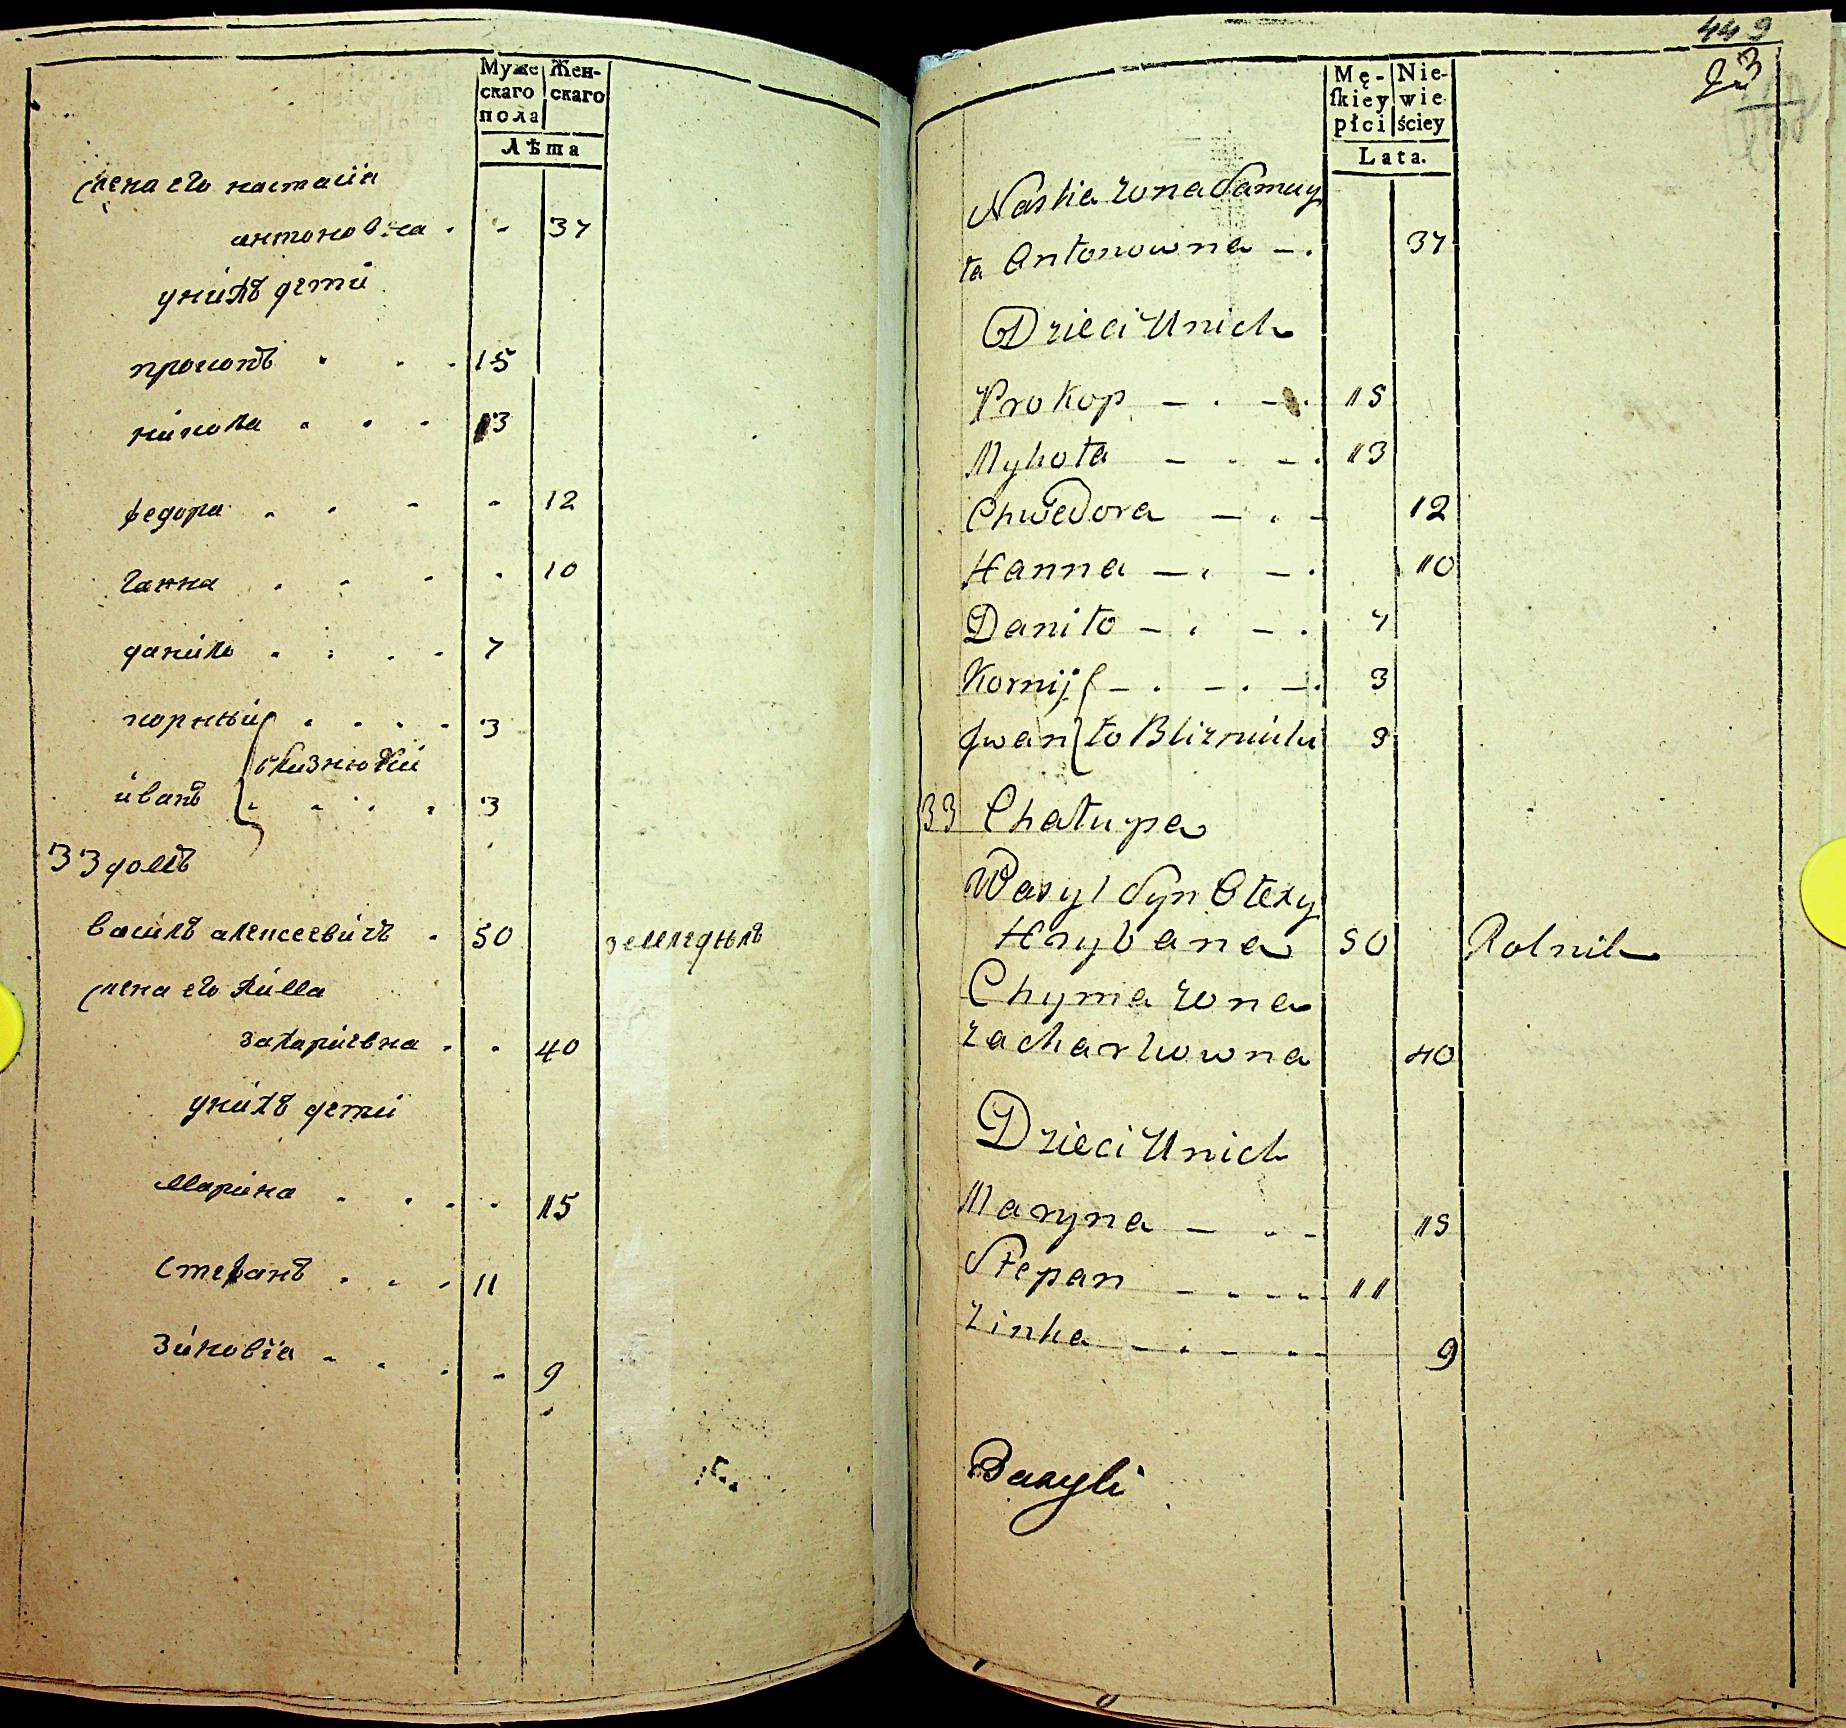 Муже Жен-
скаго скаго
пола
Лѣта
жена его настасіа
антоновна 37
унихъ дети
прокопъ 15
никола 13
федора 12
ганна 10
данило 7
корный 3
близнюки
иванъ 3
33 домъ
василь алексеевичъ 50 земледѣлъ
жена его хима
захаріевна 40
унихъ дети
марина 15
стефанъ 11
зиновіа 9
449
23
Mę- Nie-
ſkiey wie
płci ściey
Lata.
Nastia zona Samuy
ła Antonowna 37
Dzieci Unich
Prokop 15
Mykoła 13
Chwedora 12
Hanna 10
Daniło 7
Kornij 3
Jwan to Blizniuki 3
33 Chałupa
Wasyl Syn Ołexy
Hrybana 50 Rolnik
Chyma zona
zacharkowna 40
Dzieci Unich
Maryna 15
Stepan 11
Zinka 9
Bazyli